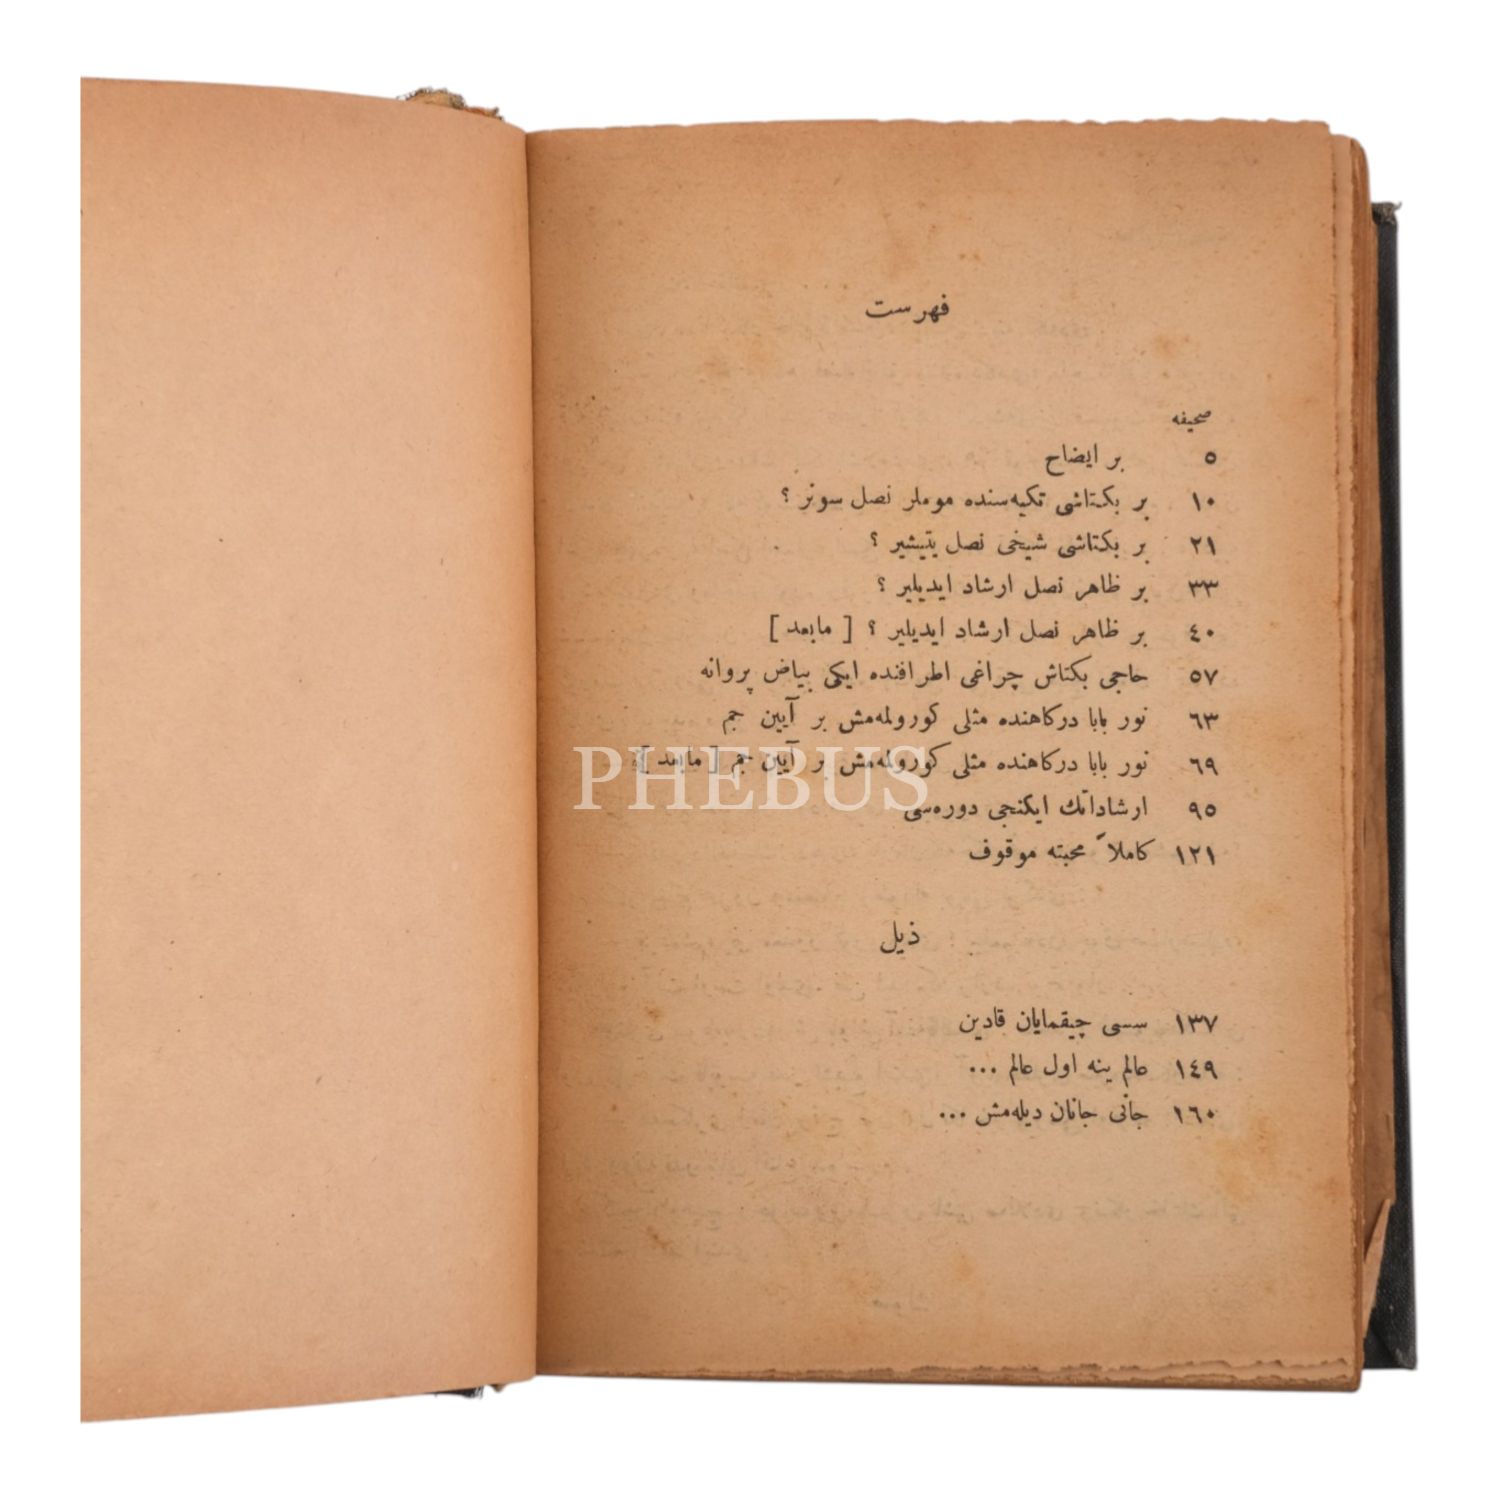 فهرست
صحیفه
٥ بر ایضاح
١٠ بر بکتاشی تکیه‌سنده موملر نصل سونر ؟
٢١ بر بکتاشی شیخی نصل یتیشیر ؟
٣٣ بر ظاهر نصل ارشاد ایدیلیر ؟
٤٠ بر ظاهر نصل ارشاد ایدیلیر ؟ [ مابعد ]
٥٧ حاجی بکتاش چراغی اطرافنده ایکی بیاض پروانه
٦٣ نور بابا درکاهنده مثلی کورولمه‌مش بر آیین جم
٦٩ نور بابا درکاهنده مثلی کورولمه‌مش بر آیین جم [ مابعد ]
PHEBUS
٩٥ ارشاداتك ایکنجی دوره‌سی
١٢١ کاملاً محبته موقوف
ذیل
١٣٧ سسی چیقمایان قادین
١٤٩ عالم ینه اول عالم ...
١٦٠ جانی جانان دیله‌مش ...